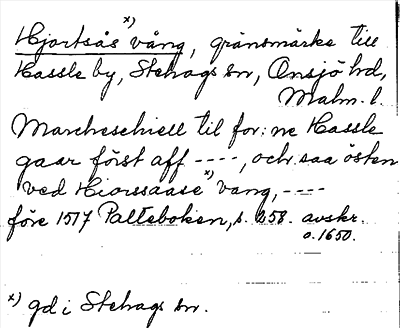 Hjortsås x) vång, gränsmärke till
Hassle by, Stehags sn, Onsjö hd,
Malm. l.
Marcheschiell til for: ne Hassle
gaar först aff ----, och saa östen
ved Hiorssaase x) vang, ----
före 1517 Palteboken, s. 258. avskr.
o. 1650.
x) gd i Stehags sn.